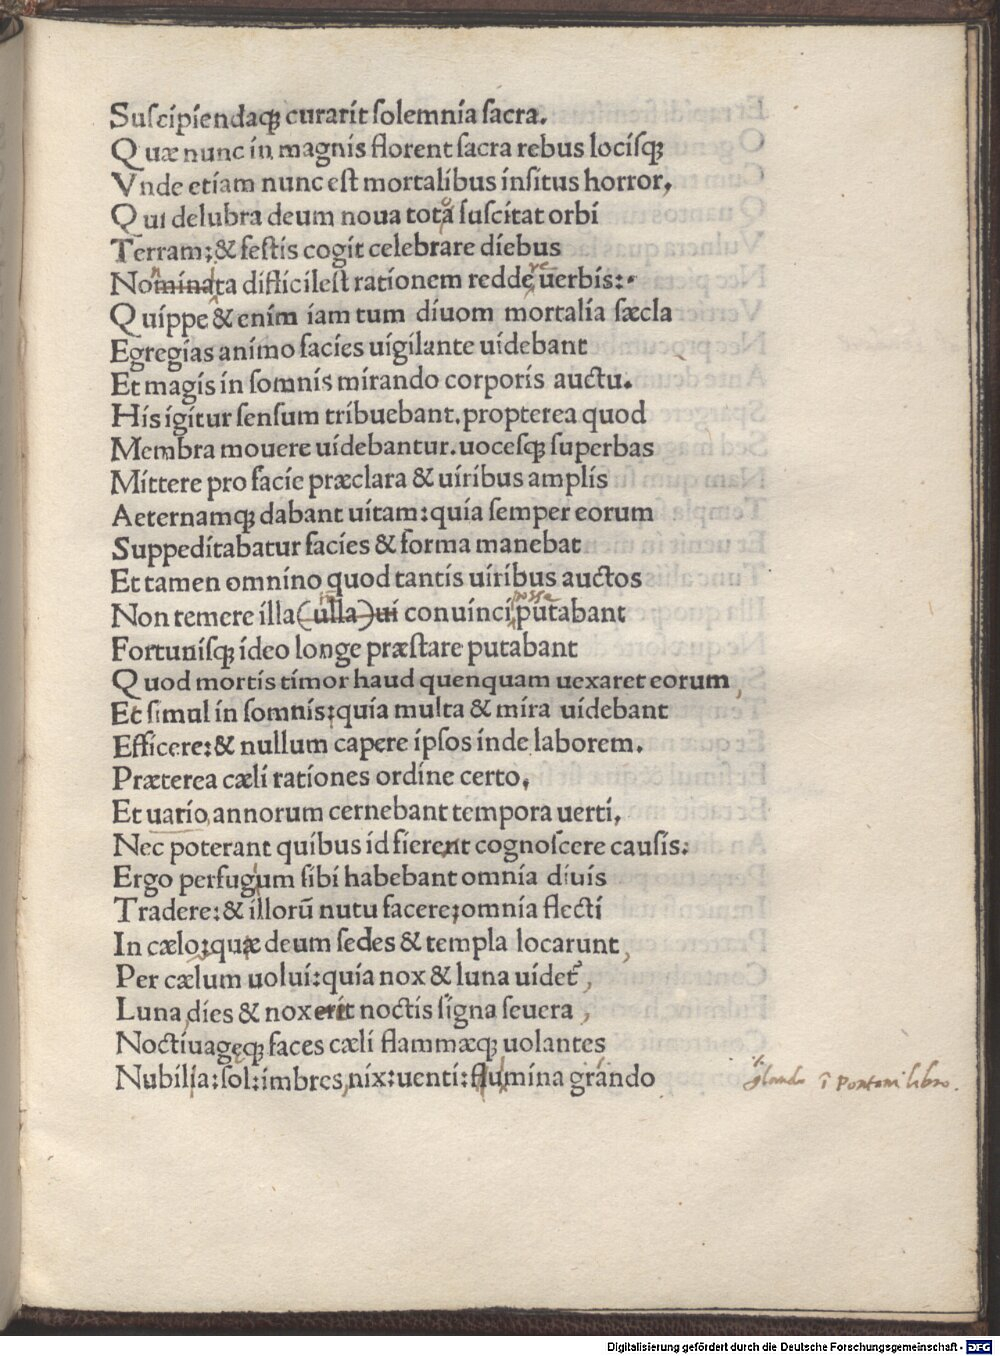 Suſcipiendaqꝫ curarit ſolemnia ſacra.
Quæ nunc in magnis florent ſacra rebus lociſqꝫ
Vnde etiam nunc eſt mortalibus inſitus horror,
Qui delubra deum noua tota ſuſcitat orbi
Terram;& feſtis cogit celebrare diebus
Nominata difficileſt rationem redde uerbis:·
Quippe & enim iam tum diuom mortalia ſæcla
Egregias animo facies uigilante uidebant
Et magis in ſomnis mirando corporis auctu.
His igitur ſenſum tribuebant.propterea quod
Membra mouere uidebantur.uoceſqꝫ ſuperbas
Mittere pro facie præclara & uiribus amplis
Aeternamqꝫ dabant uitam:quia ſemper eorum
Suppeditabatur facies & forma manebat
Et tamen omnino quod tantis uiribus auctos
posse
Non temere illa(ulla)ui conuinci putabant
Fortuniſqꝫ ideo longe præſtare putabant
Quod mortis timor haud quenquam uexaret eorum,
Et ſimul in ſomnis;quia multa & mira uidebant
Efficere:& nullum capere ipſos inde laborem.
Præterea cæli rationes ordine certo,
Et uario annorum cernebant tempora uerti,
Nec poterant quibus id fierent cognoſcere cauſis:
Ergo perfugum ſibi habebant omnia diuis
Tradere:& illorũ nutu facere;omnia flecti
In cælo;quæ deum ſedes & templa locarunt,
Per cælum uolui:quia nox & luna uidet̃,
Luna,dies & nox erit noctis ſigna ſeuera,
Noctiuagęqꝫ faces cæli flammæqꝫ uolantes
Nubilia:ſol:imbres,nix:uenti:flumina grando
glando ĩ Pontani libro.
Digitalisierung gefördert durch die Deutsche Forschungsgemeinschaft - DFG